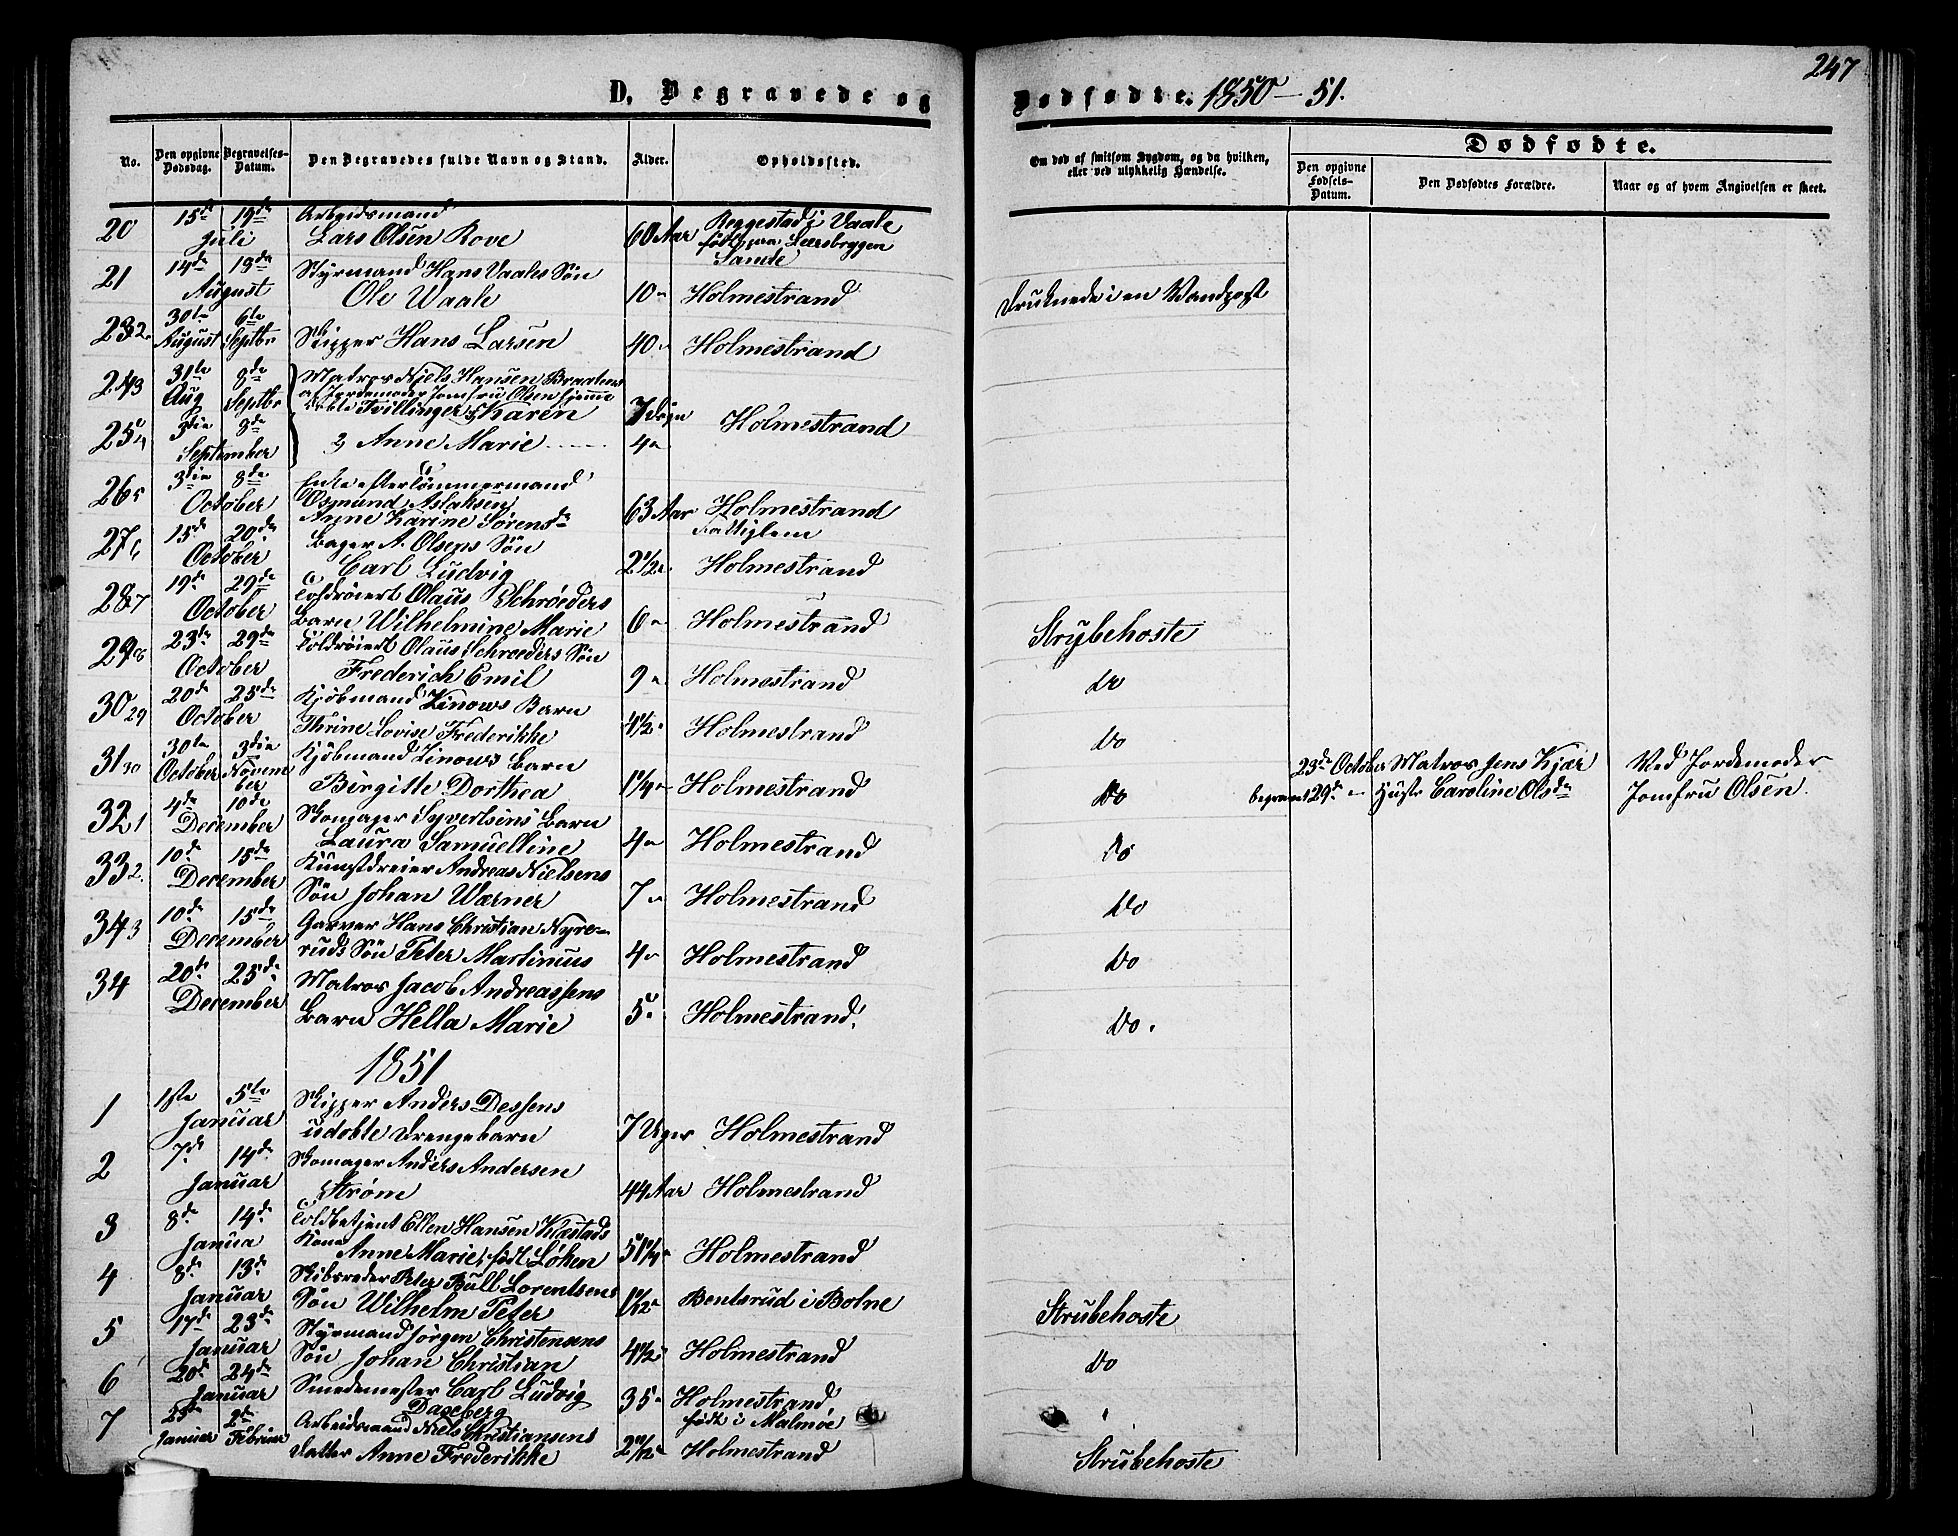 247
D. Begravede og Dødfødte. 1850-51.
No.
Den opgivne Dødsdag.
Begravelses-Datum.
Den Begravedes fulde Navn og Stand.
Alder.
Opholdssted.
Om død af smitsom Sygdom, og da hvilken, eller ved ulykkelig Hændelse.
Dødfødte.
Den opgivne Fødsels-Datum.
Den Dødfødtes Forældre.
Naar og af hvem Angivelsen er skeet.
20 15de 19de Arbeidsmand Reggestad i Vaale
Juli Lars Olsen Rove 60 Aar født paa Leersbryggen
Sande
21 14de 19de Styrmand Hans Vaales Søn
August Ole Waale 10 " Holmestrand Druknede i en Vandpost
30te 6te
232. August Septbr Skipper Hans Larsen 40 " Holmestrand
243 31te 8de Matros Niels Hansen Braatens
Aug Septbr af Jordemoder Jomfru Olsen hjemme
døbte Tvillinger Karen 7 Døgn Holmestrand
254 3die 8de
September 2, Anne Marie 4 "
265 3die 8de Enke efter Tømmermand
October Osmund Aslaksen
Anne Karine Sørensdr 63 Aar Holmestrand
Fattiglem
276 15de 20de Bager A. Olsens Søn
October Carl Ludvig 2 1/2 " Holmestrand
287 19de 29de Toldroiert Olaus Schrøeders
October Barn Wilhelmine Marie 6 " Holmestrand Strybehoste
298 23de 29de Toldroiert Olaus Schroeders Søn
October Frederich Emil 9 " Holmestrand do
3029 20de 25de Kjøbmand Linows Barn
October Thrine Lovise Frederikke 4 1/2 " Holmestrand Do
3130 30te 3die Kjøbmand Linows Barn
October Novem Birgitte Dorthea 1 1/4 " Holmestrand Do
ber
23de October Matros Jens Kjær Ved Jordemoder
begravet 29de " Hustr Caroline Olsdr Jomfru Olsen.
321 4de 10de Skomager Syvertsens Barn
December Laura Samuelline 4 " Holmestrand Do
332. 10de 15de Kunstdreier Andreas Nielsens
December Søn Johan Werner 7 " Holmestrand Do
343 10de 15de Garver Hans Christian Nyre-
December ruds Søn Peter Martinius 4 " Holmestrand Do
34 20de 25de Matros Jacob Andreassens
December Barn Hella Marie 5 " Holmestrand. Do.
1851
1 1ste 5te Skipper Anders Dessens
Januar udøbte Drengebarn 7 Uger Holmestrand
2 7de 14de Skomager Anders Andersen
Januar Strøm 44 Aar Holmestrand
3 8de 14de Toldbetjent Ellen Hansen Kiæstads
Janua Kone Anne Marie, født Løken 51 1/4 " Holmestrand
4 8de 13de Skibsreder Peter Bull Lorentsens
Januar Søn Wilhelm Peter 1 1/12 " Bentsrud i Botne Strubehoste
5 17de 23de Styrmand Jørgen Christensens
Januar Søn Johan Christian 4 1/2 " Holmestrand Do
6 20de 24de Smedemester Carl Ludvig
Januar Dageberg 35 " Holmestrand
født i Malmøe
7 25de 2de Arbeidsmand Niels Christiansens
Januar Februar Datter Anne Frederikke 2 11/12 " Holmestrand Strubehoste